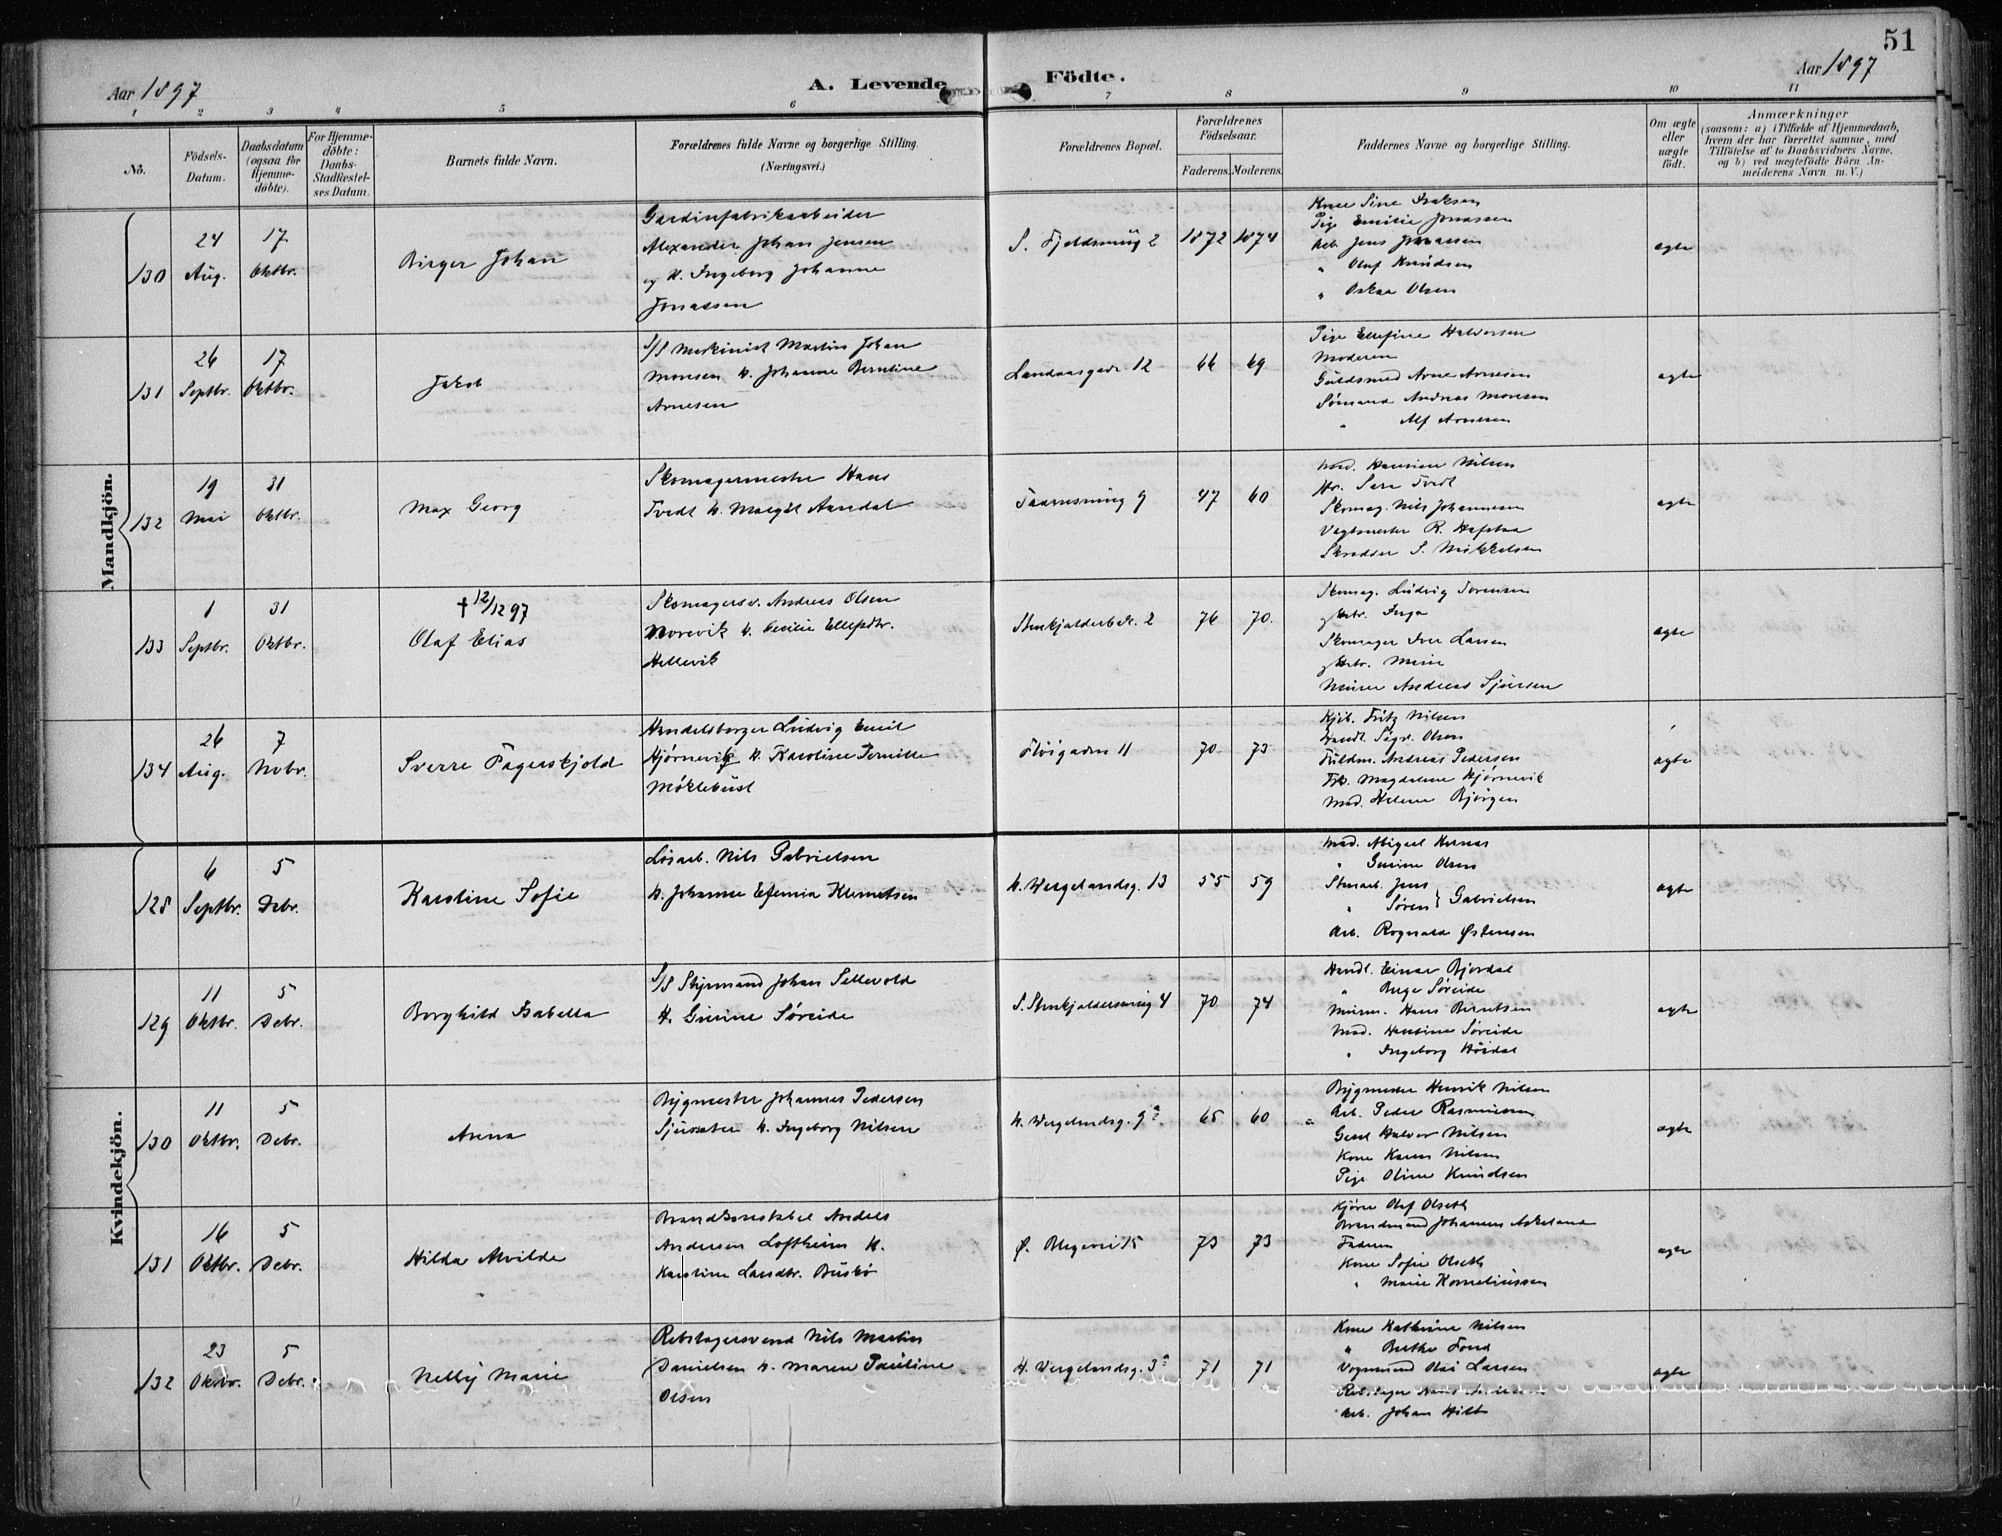 51
Aar 1897
A. Levende Födte.
Aar 1897
1 2 3 4 5 6 7 8 9 10 11
No.
Födsels-Datum.
Daabsdatum (ogsaa for Hjemme-döbte).
For Hjemme-döbte: Daabs-Stadfæstel-ses Datum.
Barnets fulde Navn.
Forældrenes fulde Navne og borgerlige Stilling. (Næringsvei.)
Forældrenes Bopæl.
Forældrenes Födselsaar.
Faderens. Moderens.
Faddernes Navne og borgerlige Stilling.
Om ægte eller uægte födt.
Anmærkninger
(saasom: a) i Tilfælde af Hjemmedaab, hvem der har forrettet samme, med Tilföielse af to Daabsvidners Navne, og b) ved uægtefödte Börn An-melderens Navn m. V.)
Mandkjön.
130
24 Aug.
17 Oktbr.
Birger Johan
Gardinfabrikarbeider
Alexander Johan Jensen
og H. Ingeborg Johanne
Jonassen
S. Fjeldsmug 2
1872 1874
Kone Sine Isaksen
Pige Emilie Jonassen
Arb. Jens Jonassen
" Olaf Knudsen
" Oskar Olsen
ægte
131
26 Septbr.
17 Oktbr.
Jakob
S/S Maskinist Martin Johan
Monsen H. Johanne Berntine
Arnesen
Landaasgade 12
66 69
Pige Ellefine Halvorsen
Moderen
Guldsmed Arne Arnesen
Sømand Andreas Monsen
" Alf Arnesen
ægte
132
19 Mai
31 Oktbr.
Max Georg
Skomagermester Hans
Tvedt H. Margit Aandal
47 60
Mad. Hansine Nilsen
Hr. Tvedt
Skomag. Nils Johannesen
Vagtmester R.
Skrædder S. Mikkelsen
ægte
133
1 Septbr.
31 Oktbr.
† 12/12 97
Olaf Elias
Skomagersv. Andreas Olsen
Norevik H. Cecilie Ellefsdtr.
Hellevik
Stenkjelderbk. 2
76 70.
Skomag. Ludvig Sørensen
Hstr. Inga
Skomager Iver Larsen
Hstr. Marie
Murer Andreas Sjursen
ægte
134
26 Aug.
7 Nvbr.
Sverre Fagerskjold
Handelsborger Ludvig Emil
Kjørnevik H. Karoline Pernille
Møklebust
Fløigaden 11
70 73
Fritz Nilsen
Handl. Sigv. Olsen
Fuldm. Andreas Pedersen
Frk. Magdalene Kjørnevik
Mad. Helene Bjørgen
ægte
Kvindekjön.
128
6 Septbr.
5 Debr.
Karoline Sofie
Løsarb. Nils Gabrielsen
H. Johanne Efemia Klemetsen
H. Wergelandsg. 13
55 59
Mad. Abigael
" Gurine Olsen
Stenarb. Jens
" Søren } Gabrielsen
Arb. Rognald Østensen
ægte
129
11 Oktbr.
5 Debr.
Borghild Isabella
S/S Styrmand Johan Sellevold
H. Gurine Søreide
S. Stenkjeldersmug 4
70 74
Handl. Einar Bjordal
" Berge Søreide
Murm. Hans Berntsen
Mad. Søreide
" Ingeborg
ægte
130
11 Oktbr.
5 Debr.
Anna
Bygmester Johannes Pedersen
Sjursæter H. Ingeborg Nilsen
H. Wergelandsg. 9a
65 60
Bygmester Henrik Nilsen
Arb. Peder Rasmussen
Halvor Nilsen
Kone Karen Nilsen
Pige Oline Knudsen
ægte
131
16 Oktbr.
5 Debr.
Hilda Alvilde
Brandkonstabel Andreas
Andersen Loftheim H.
Karoline Larsdtr. Buskø
Ø. Blegevei 15
73 73
Kjører Olaf Olseth
Brandmand Johannes Askeland
Faderen
Kone Sofie Olseth
" Marie Korneliussen
ægte
132
23 Oktbr.
5 Debr.
Nelly Marie
Rebslagersvend Nils Martin
Danielsen H. Maren Pauline
Olsen
H. Wergelandsg. 3a
71 71
Kone Kathrine Nilsen
" Berthe
Vognmand Larsen
Rebslager
Arb. Johan
ægte